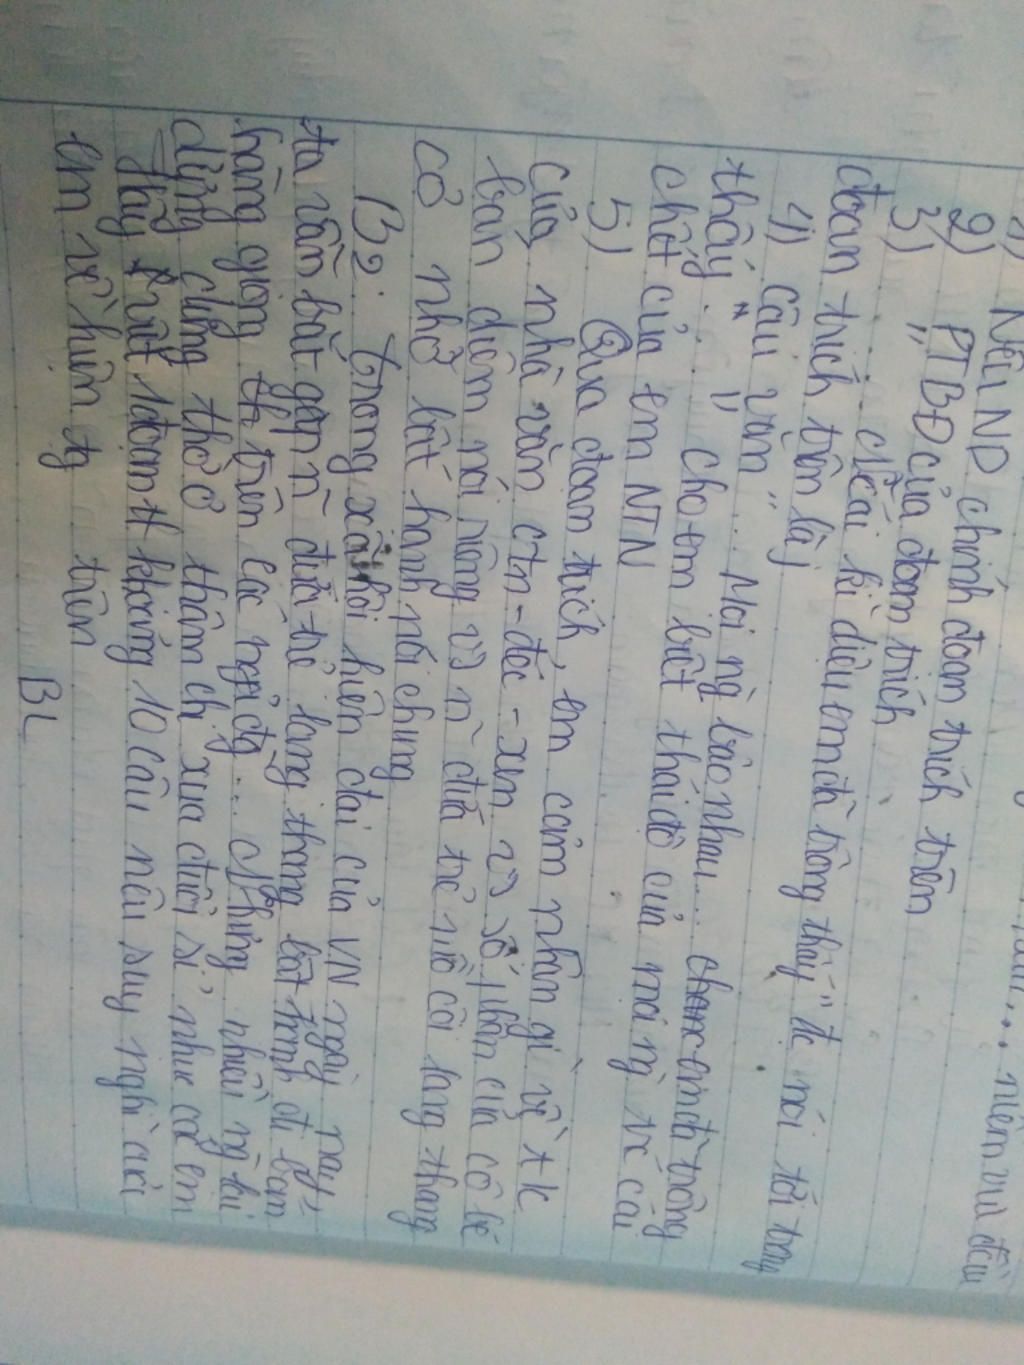 niềm vui đầu
1) Nêu ND chính đoạn trích trên
2) PTBĐ của đoạn trích
3) "... cái kì diệu em đã trông thấy" đc nói tới trong
đoạn trích trên là j
4) câu văn "... Mọi ng bảo nhau ... em đã trông
thấy ..." cho em biết thái độ của mọi ng vs cái
chết của em NTN
5) Qua đoạn trích, em cảm nhận gì về t k
của nhà văn ctn-đéc-xen vs số phận của cô bé
bán diêm nói riêng vs n~ đứa trẻ mồ côi lang thang
cơ nhỡ bất hạnh nói chung
B2: Trong xã hội hiện đại của VN ngày nay
ta vẫn bắt gặp n~ đứa trẻ lang thang bất hạnh đi bán
hàng giữa trên các ngả đg ... Nhưng nhiều ng lại
dửng dưng thờ ơ thậm chí xua đuổi sỉ nhục các em
Hãy viết 1 đoạn khoảng 10 câu nêu suy nghĩ của
em về hiện tg trên
BL